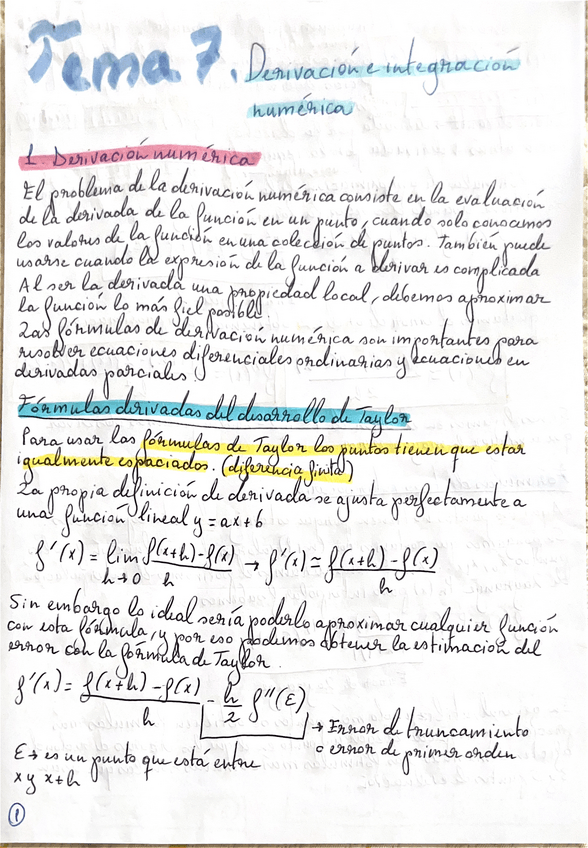 Tema 7. Derivación e integración
numérica
1. Derivación numérica
El problema de la derivación numérica consiste en la evaluación
de la derivada de la función en un punto, cuando solo conocemos
los valores de la función en una colección de puntos. También puede
usarse cuando la expresión de la función a derivar es complicada
Al ser la derivada una propiedad local, debemos aproximar
la función lo más fiel posible.
Las fórmulas de derivación numérica son importantes para
resolver ecuaciones diferenciales ordinarias y ecuaciones en
derivadas parciales.
Fórmulas derivadas del desarrollo de Taylor
Para usar las fórmulas de Taylor los puntos tienen que estar
igualmente espaciados. (diferencia finita)
La propia definición de derivada se ajusta perfectamente a
una función lineal y = ax + b
f'(x) = lim h→0 f(x+h)-f(x) / h → f'(x) ≈ f(x+h) - f(x) / h
Sin embargo lo ideal sería poderlo aproximar cualquier función
con esta fórmula, y por eso podemos obtener la estimación del
error con la fórmula de Taylor.
f'(x) = f(x+h) - f(x) / h - h/2 f''(ε)
→ Error de truncamiento
o error de primer orden
ε → es un punto que está entre
x y x+h
1